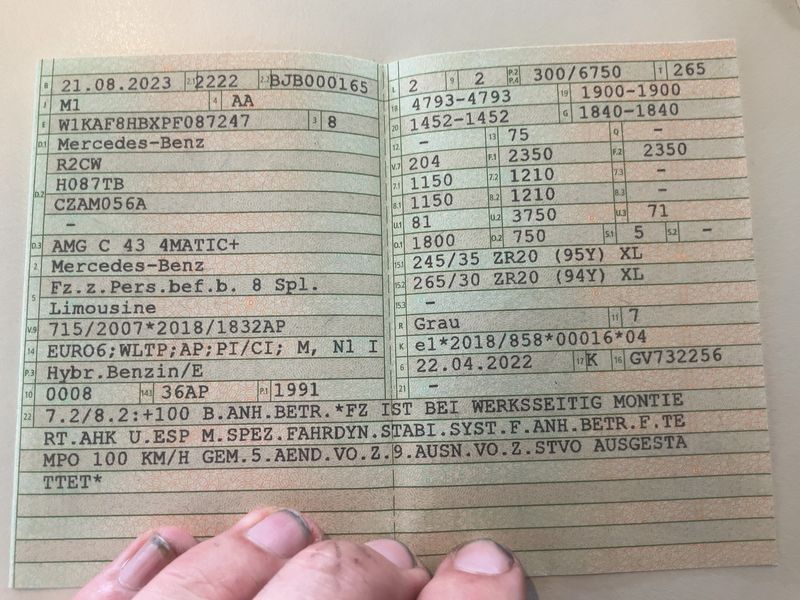 B 21.08.2023 2.1 2222 2.2 BJB000165
J M1 4 AA
E W1KAF8HBXPF087247 3 8
D.1 Mercedes-Benz
R2CW
H087TB
D.2 CZAM056A
–
D.3 AMG C 43 4MATIC+
2 Mercedes-Benz
5 Fz.z.Pers.bef.b. 8 Spl.
Limousine
V.9 715/2007*2018/1832AP
14 EURO6;WLTP;AP;PI/CI; M, N1 I
P.3 Hybr.Benzin/E
10 0008 14.1 36AP P.1 1991
L 2 9 2 P.2 P.4 300/6750 T 265
18 4793-4793 19 1900-1900
20 1452-1452 G 1840-1840
12 – 13 75 Q –
V.7 204 F.1 2350 F.2 2350
7.1 1150 7.2 1210 7.3 –
8.1 1150 8.2 1210 8.3 –
U.1 81 U.2 3750 U.3 71
O.1 1800 O.2 750 S.1 5 S.2 –
15.1 245/35 ZR20 (95Y) XL
15.2 265/30 ZR20 (94Y) XL
15.3 –
R Grau 11 7
K e1*2018/858*00016*04
6 22.04.2022 17 K 16 GV732256
21 –
22 7.2/8.2:+100 B.ANH.BETR.*FZ IST BEI WERKSSEITIG MONTIE
RT.AHK U.ESP M.SPEZ.FAHRDYN.STABI.SYST.F.ANH.BETR.F.TE
MPO 100 KM/H GEM.5.AEND.VO.Z.9.AUSN.VO.Z.STVO AUSGESTA
TTET*